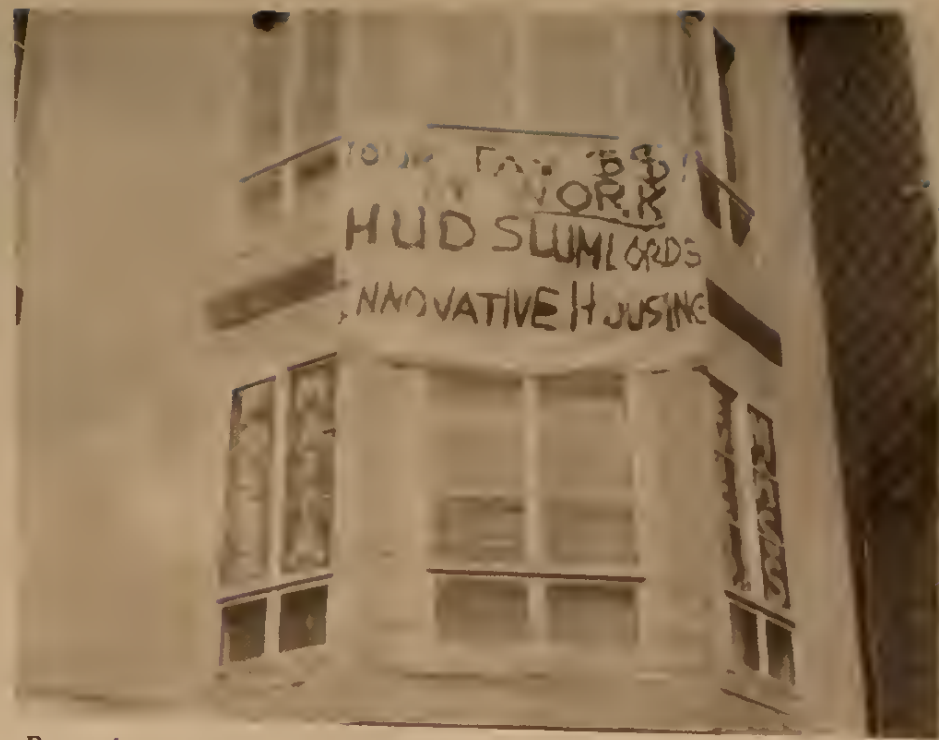 YOUR TAX $$
WORK
HUD SLUMLORDS
INNOVATIVE HOUSING